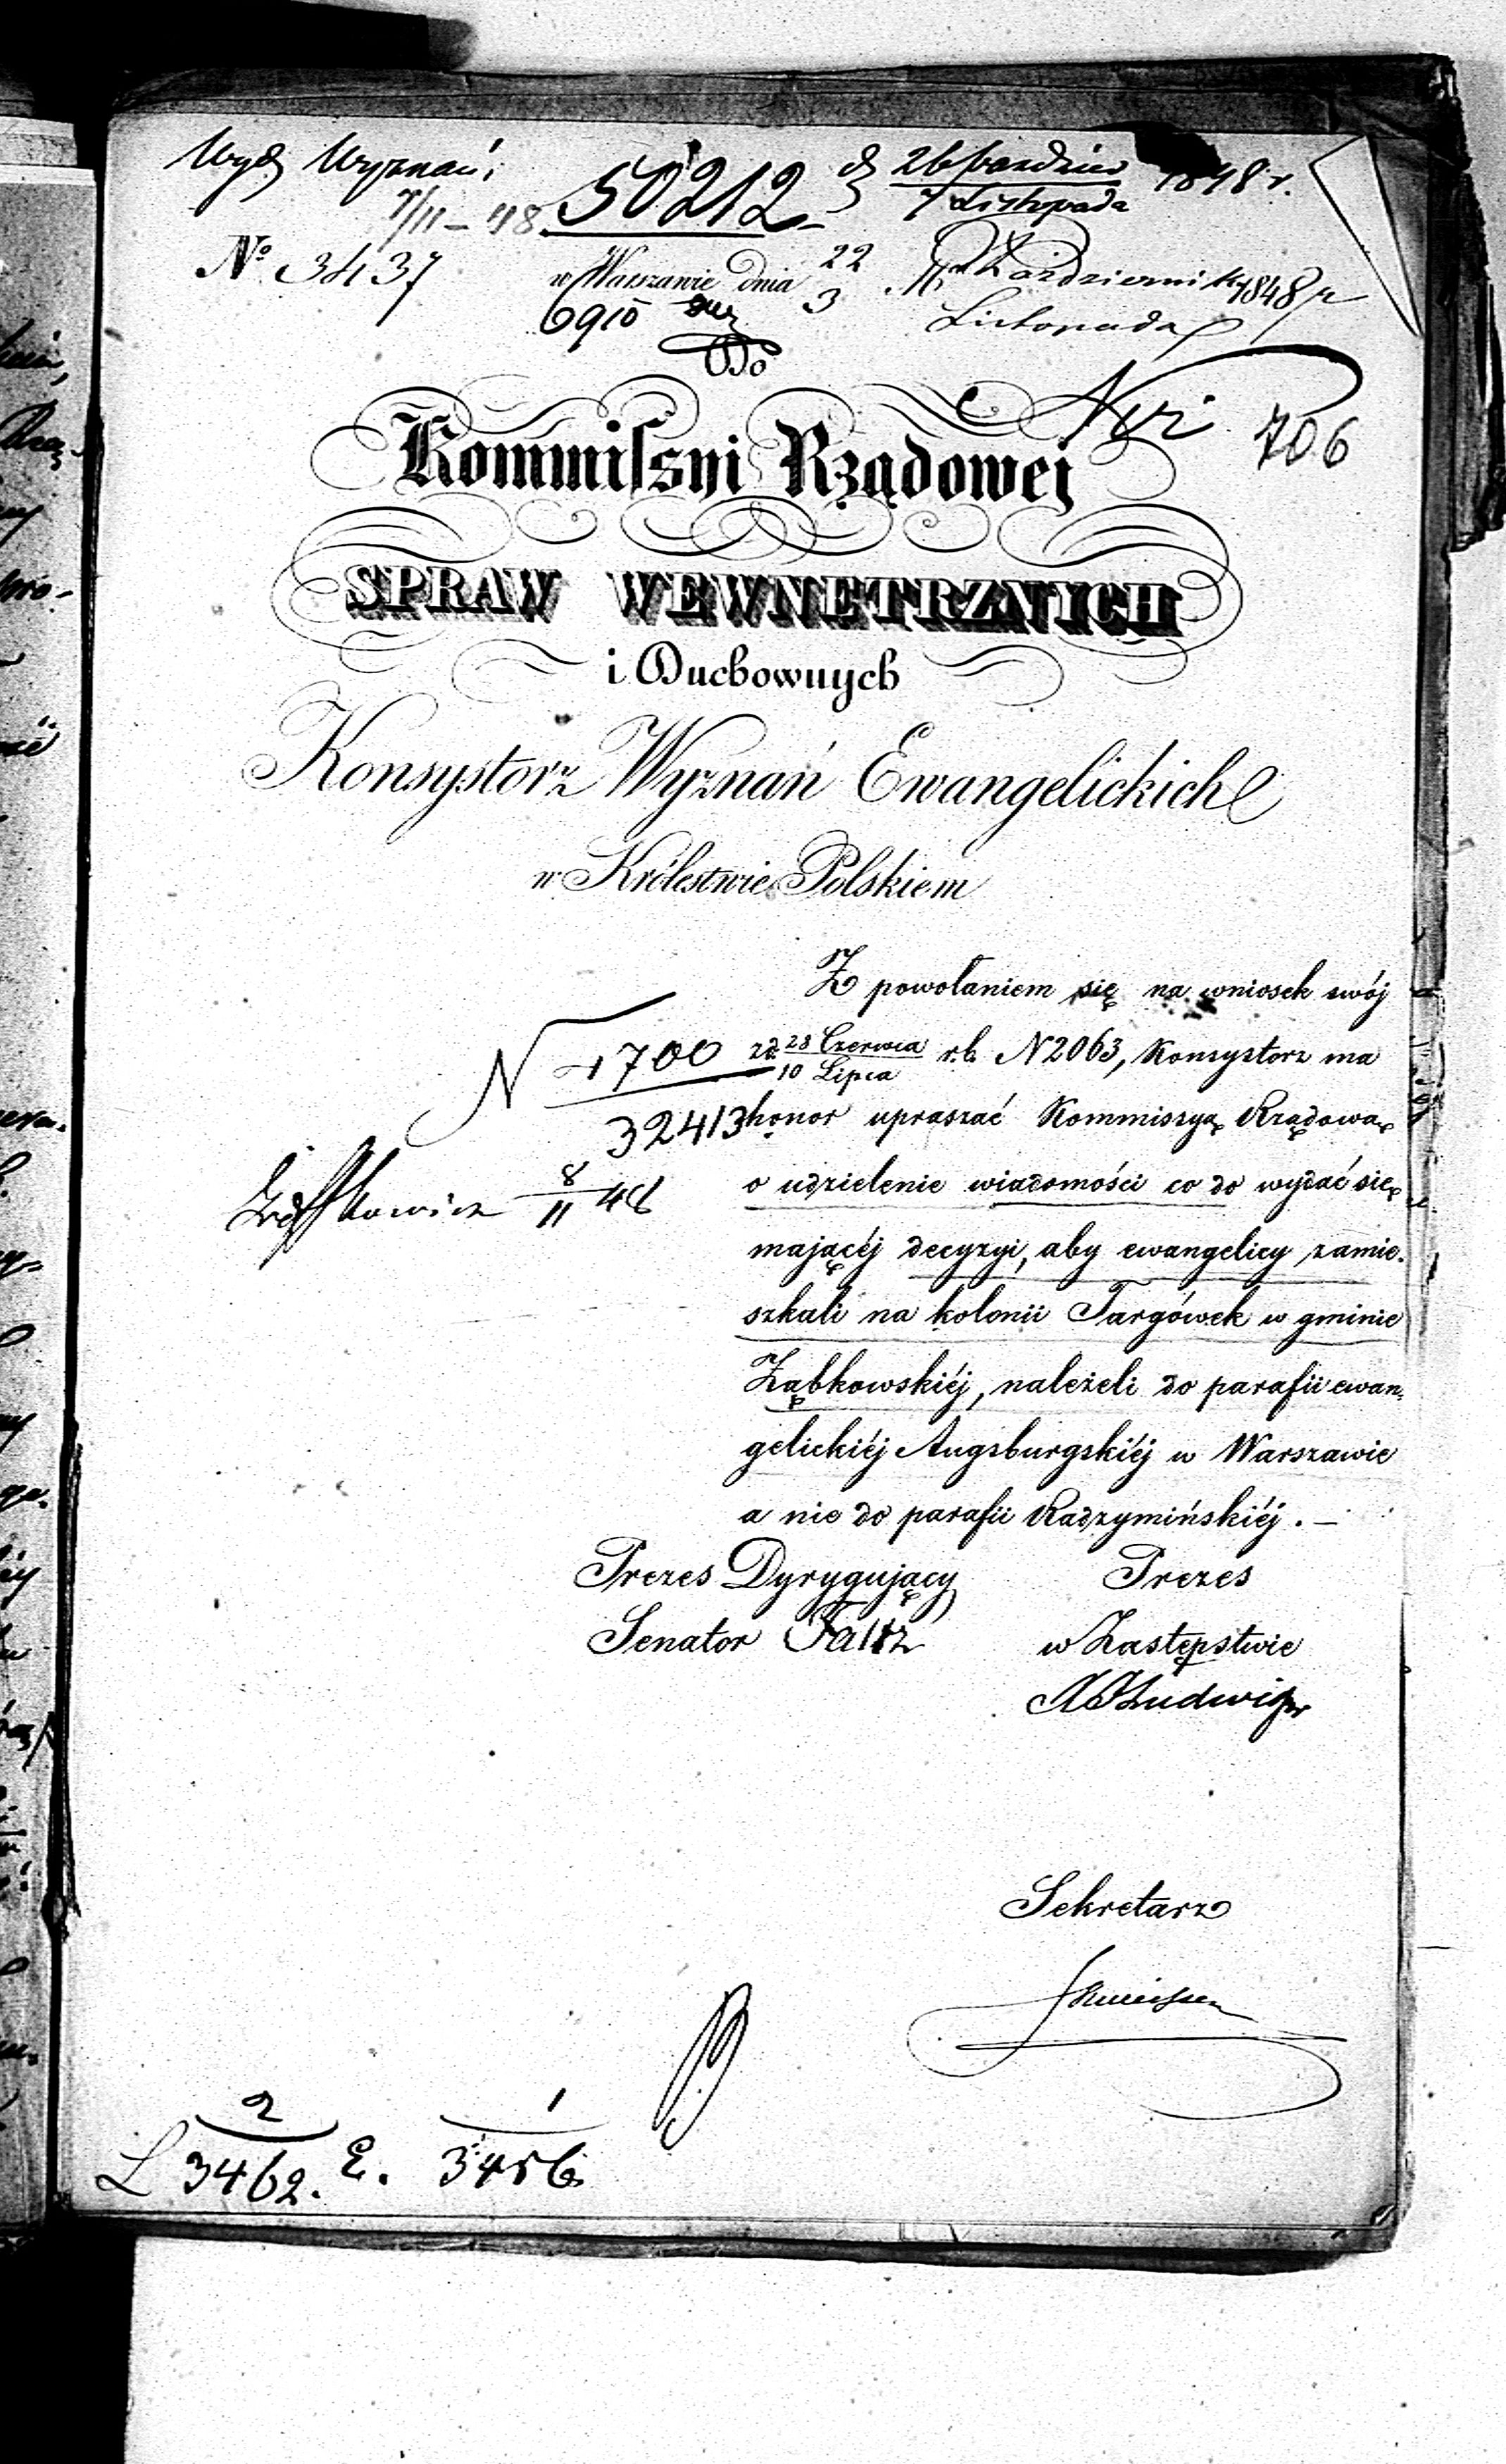 Wydz Wyznań
7/11 – 48. 50212 d 26 Paździer 1848 r.
7 Listopada
No 3437 w Warszawie dnia 22 Października 1848 r
3 Listopada
6910
Do
Nr 706
Kommissyi Rządowej
SPRAW WEWNETRZNYCH
i Duchownych
Konsystorz Wyznań Ewangelickich
w Królestwie Polskiem
Z powołaniem się na wniosek swój
N 1700 zd. 28 Czerwca r.b. N 2063, Konsystorz ma
10 Lipca
32413 honor upraszać Kommissyą Rządową
8/11 48 o udzielenie wiadomości co do wydać się
mającéj decyzyi, aby ewangelicy zamie-
szkali na kolonii Targówek w gminie
Ząbkowskiéj, należeli do parafii ewan-
gelickiéj Augsburgskiéj w Warszawie
a nie do parafii Radzymińskiéj. –
Prezes Dyrygujący Prezes
Senator w Zastępstwie
Ludwig
Sekretarz
2 1
L 3462. E. 3456